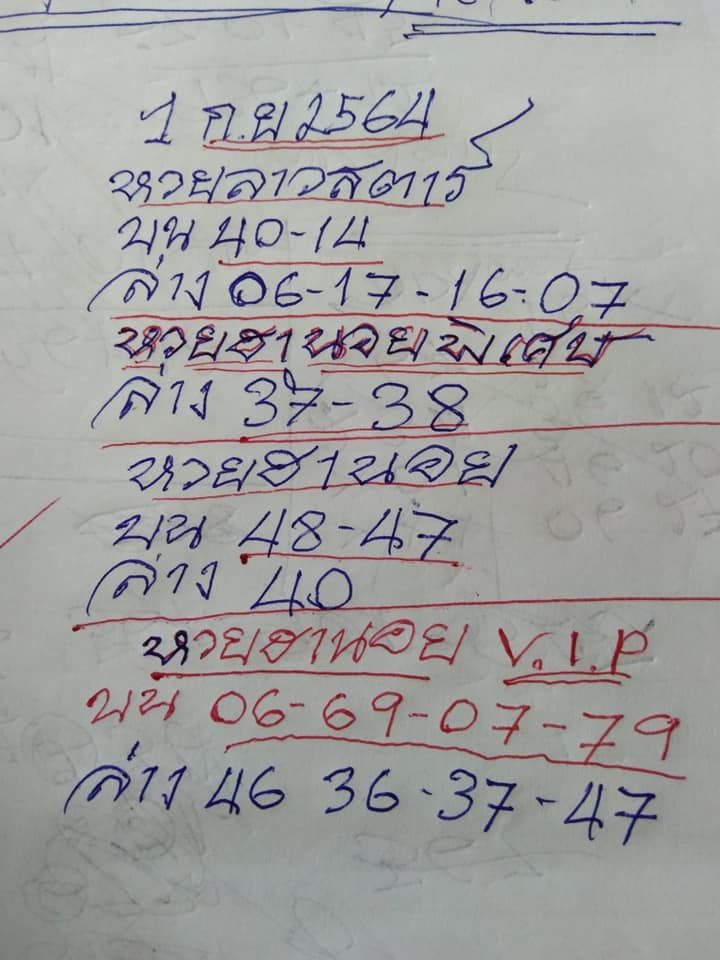 1 ก.ย 2564
หวยลาวสตาร์
บน 40-14
ล่าง 06-17-16-07
หวยฮานอยพิเศษ
ล่าง 37-38
หวยฮานอย
บน 48-47
ล่าง 40
หวยฮานอย V.I.P
บน 06-69-07-79
ล่าง 46 36-37-47